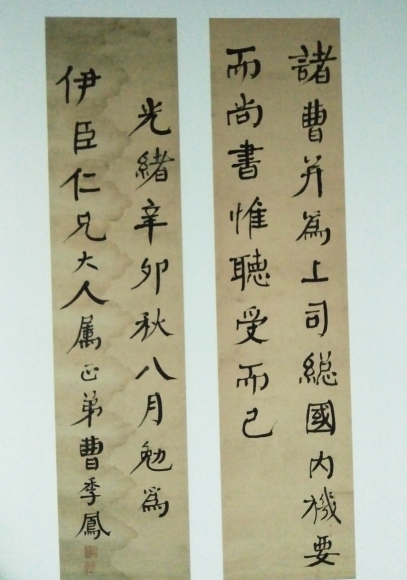 諸曹并為上司総國内機要
而尚書惟聽受而已
光緒辛卯秋八月勉為
伊臣仁兄大人属正弟曹季鳳